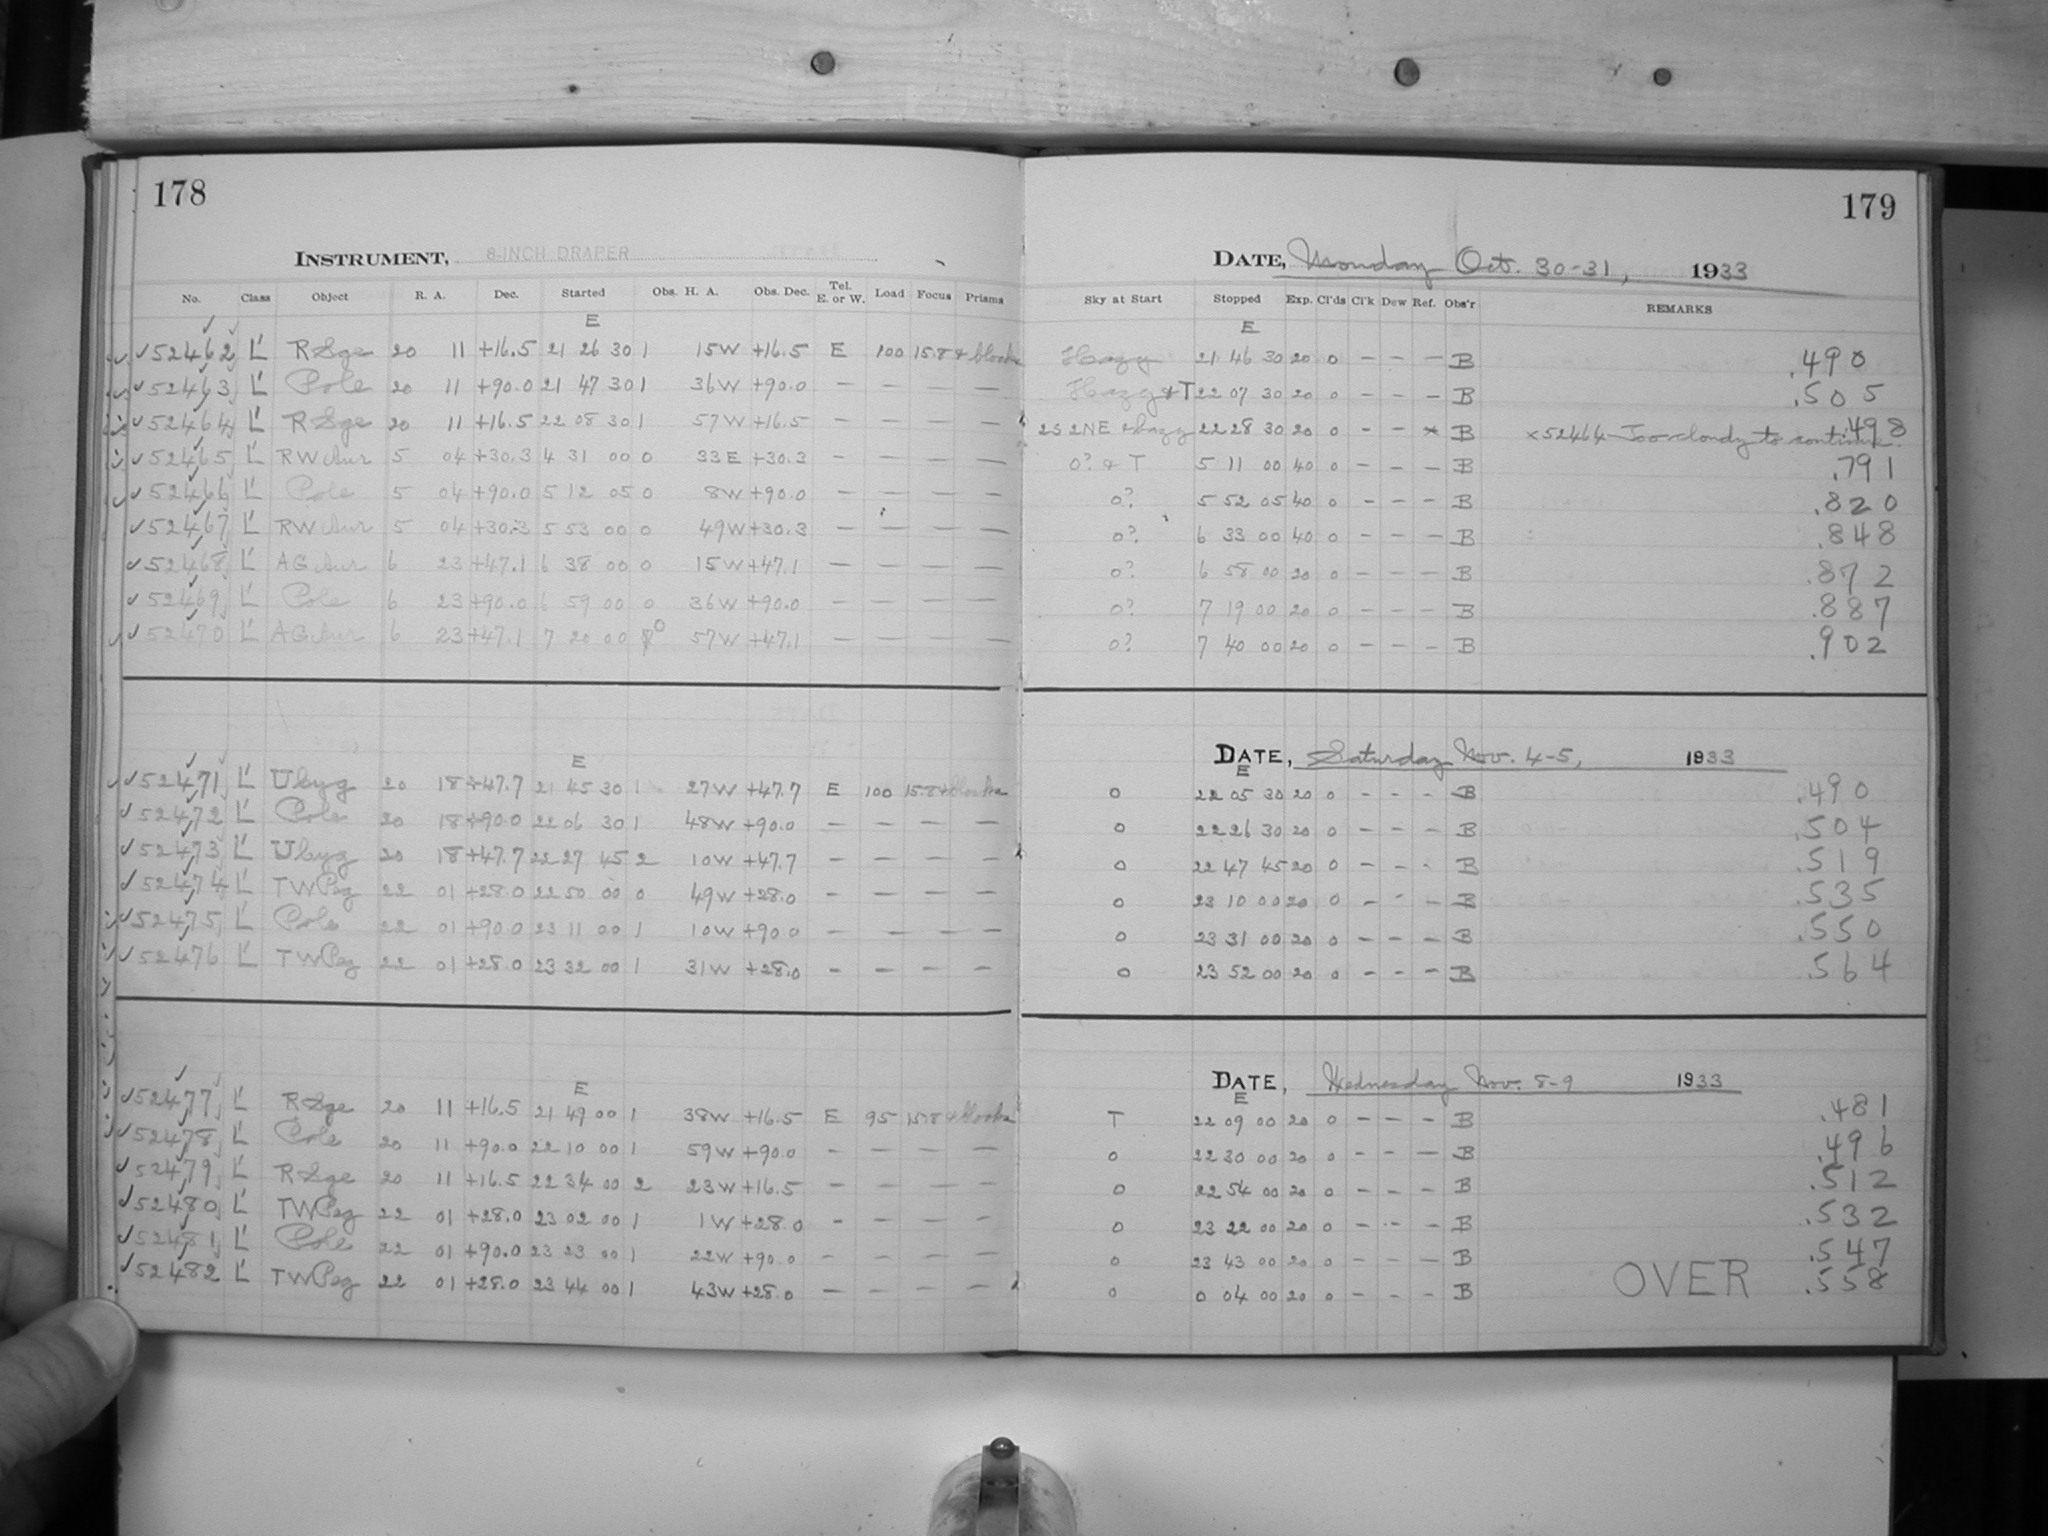 178
INSTRUMENT, 8-INCH DRAPER
No. Class Object R. A. Dec. Started Obs. H. A. Obs. Dec. Tel. E. or W. Load Focus Prisms
E
52462 L' R Sge 20 11 +16.5 21 26 30 1 15W +16.5 E 100 15.8
52463 L' Pole 20 11 +90.0 21 47 30 1 36W +90.0 — — — —
52464 L' R Sge 20 11 +16.5 22 08 30 1 57W +16.5 — — — —
52465 L' RW Aur 5 04 +30.3 4 31 00 0 33E +30.3 — — — —
52466 L' Pole 5 04 +90.0 5 12 05 0 8W +90.0 — — — —
52467 L' RW Aur 5 04 +30.3 5 53 00 0 49W +30.3 — — — —
52468 L' AG Aur 6 23 +47.1 6 38 00 0 15W +47.1 — — — —
52469 L' Pole 6 23 +90.0 6 59 00 0 36W +90.0 — — — —
52470 L' AG Aur 6 23 +47.1 7 20 00 0 57W +47.1 — — — —
E
52471 L' U Cyg 20 18 +47.7 21 45 30 1 27W +47.7 E 100 15.8
52472 L' Pole 20 18 +90.0 22 06 30 1 48W +90.0 — — — —
52473 L' U Cyg 20 18 +47.7 22 27 45 2 10W +47.7 — — — —
52474 L' TW Peg 22 01 +28.0 22 50 00 0 49W +28.0 — — — —
52475 L' Pole 22 01 +90.0 23 11 00 1 10W +90.0 — — — —
52476 L' TW Peg 22 01 +28.0 23 32 00 1 31W +28.0 — — — —
E
52477 L' R Sge 20 11 +16.5 21 49 00 1 38W +16.5 E 95 15.8
52478 L' Pole 20 11 +90.0 22 10 00 1 59W +90.0 — — — —
52479 L' R Sge 20 11 +16.5 22 34 00 2 23W +16.5 — — — —
52480 L' TW Peg 22 01 +28.0 23 02 00 1 1W +28.0 — — — —
52481 L' Pole 22 01 +90.0 23 23 00 1 22W +90.0 — — — —
52482 L' TW Peg 22 01 +28.0 23 44 00 1 43W +28.0 — — — —
179
DATE, Monday Oct. 30-31, 1933
Sky at Start Stopped Exp. Cl'ds Cl'k Dew Ref. Obs'r REMARKS
E
Hazy 21 46 30 20 0 — — — B .490
Hazy & T 22 07 30 20 0 — — — B .505
22 28 30 20 0 — — x B x52464 - Too cloudy to continue. .498
0? & T 5 11 00 40 0 — — — B .791
0? 5 52 05 40 0 — — — B .820
0? 6 33 00 40 0 — — — B .848
0? 6 58 00 20 0 — — — B .872
0? 7 19 00 20 0 — — — B .887
0? 7 40 00 20 0 — — — B .902
DATE, Saturday Nov. 4-5, 1933
E
0 22 05 30 20 0 — — — B .490
0 22 26 30 20 0 — — — B .504
0 22 47 45 20 0 — — — B .519
0 23 10 00 20 0 — — — B .535
0 23 31 00 20 0 — — — B .550
0 23 52 00 20 0 — — — B .564
DATE, Wednesday Nov. 8-9 1933
E
T 22 09 00 20 0 — — — B .481
0 22 30 00 20 0 — — — B .496
0 22 54 00 20 0 — — — B .512
0 23 22 00 20 0 — — — B .532
0 23 43 00 20 0 — — — B .547
0 0 04 00 20 0 — — — B OVER .558